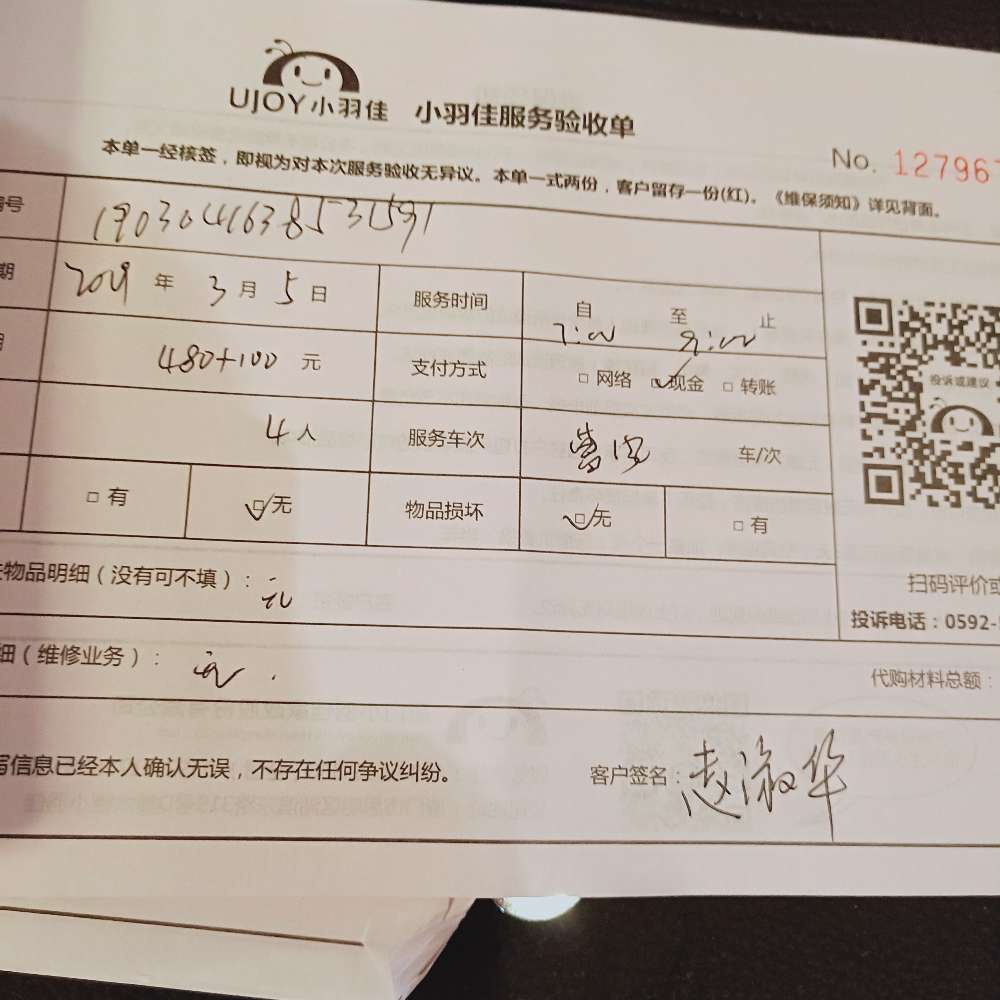 UJOY小羽佳 小羽佳服务验收单
No. 12796
本单一经核签，即视为对本次服务验收无异议。本单一式两份，客户留存一份(红)。《维保须知》详见背面。
编号 1903041638531591
期 2019 年 3 月 5 日 服务时间 自 7:00 至 9:00 止
480+100 元 支付方式 □ 网络 ☑ 现金 □ 转账
4 人 服务车次 车/次
□ 有 ☑ 无 物品损坏 ☑ 无 □ 有
投诉或建议
扫码评价或
投诉电话：0592-
物品明细（没有可不填）： 无
细（维修业务）：
代购材料总额：
写信息已经本人确认无误，不存在任何争议纠纷。 客户签名：赵淑华